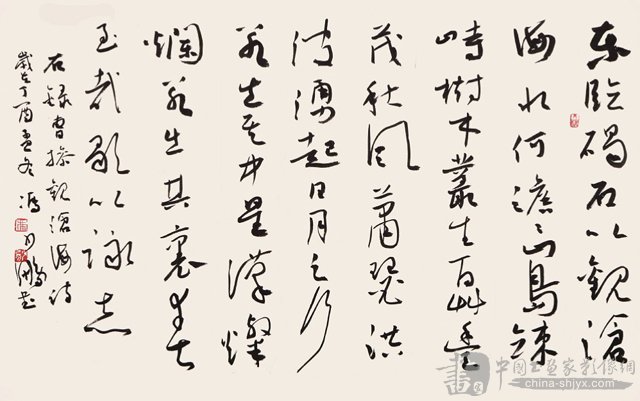 東臨碣石以觀滄
海水何澹澹山島竦
峙樹木叢生百艸豐
茂秋風蕭瑟洪
波湧起日月之行
若出其中星漢燦
爛若出其裏幸甚
至哉歌以詠志
右録曹操觀滄海詩
歲在丁酉孟冬馮鵬書
中國書畫家影像網
china-shjyx.com